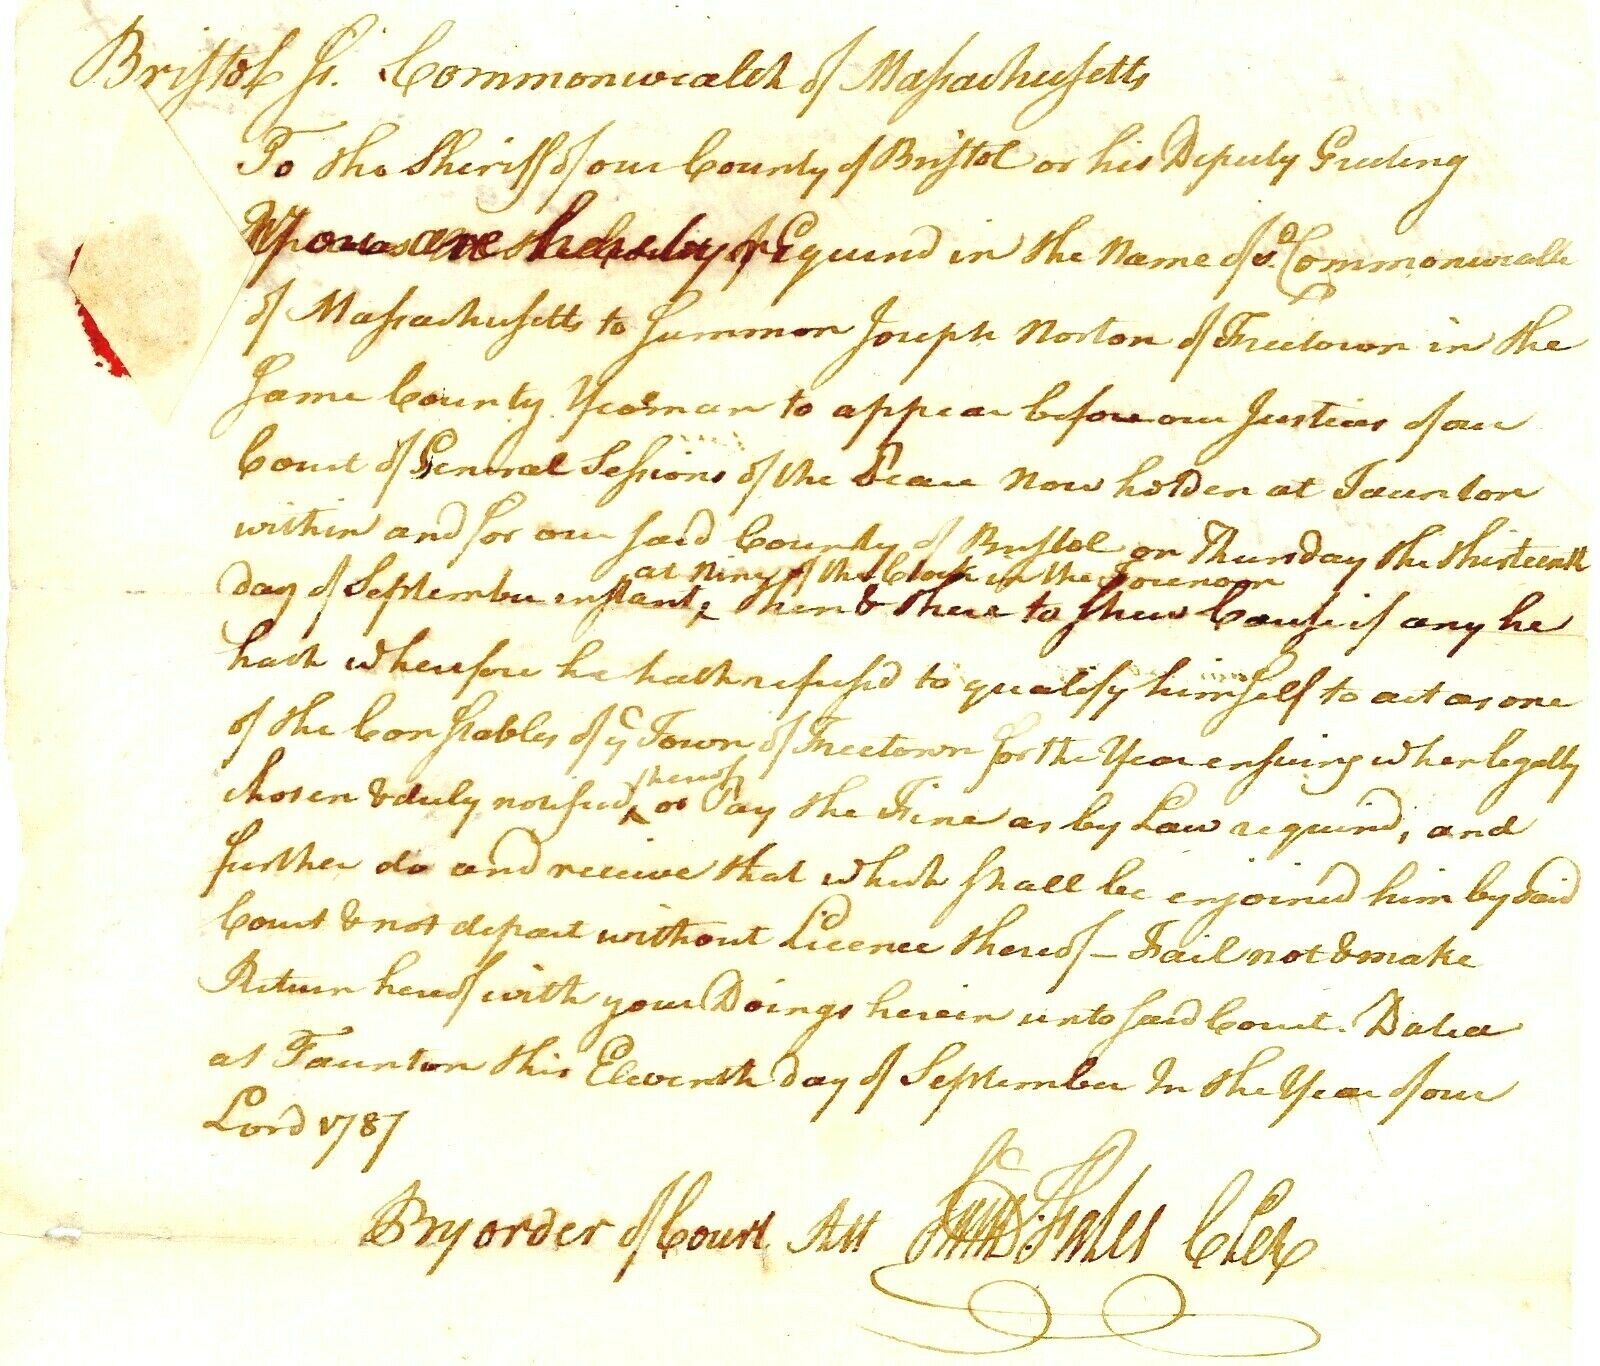 Bristol ss. Commonwealth of Massachusetts
To the Sheriff of our County of Bristol or his Deputy Greeting
You are hereby requird in the Name of sd. Commonwealth
of Massachusetts to Summon Joseph Norton of Freetown in the
Same County Yeoman to appear before our Justices of our
Court of General Sessions of the Peace Now holden at Taunton
within and for our said County of Bristol on Thursday the thirteenth
at Nine of the Clock in the Forenoon
day of September instant, ^ then & there to shew Cause if any he
hath wherefore he hath refused to qualify himself to act as one
of the Constables of ye Town of Freetown for the Year ensuing when legally
thereof
chosen & duly notified ^ or Pay the Fine as by Law requird, and
further do and receive that which shall be enjoined him by said
Court & not depart without Licence thereof – Fail not & make
Return hereof with your Doings herein unto said Court. Dated
at Taunton this Eleventh day of September In the Year of our
Lord 1787
By order of Court Att Saml Fales Cler